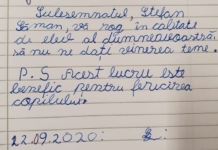 Subsemnatul, Ștefan
Șiman, vă rog, în calitate
de elev al dumneavoastră
să nu ne dați vinerea teme.
P.S Acest lucru este
benefic pentru fericirea
copilului
22.09.2020: